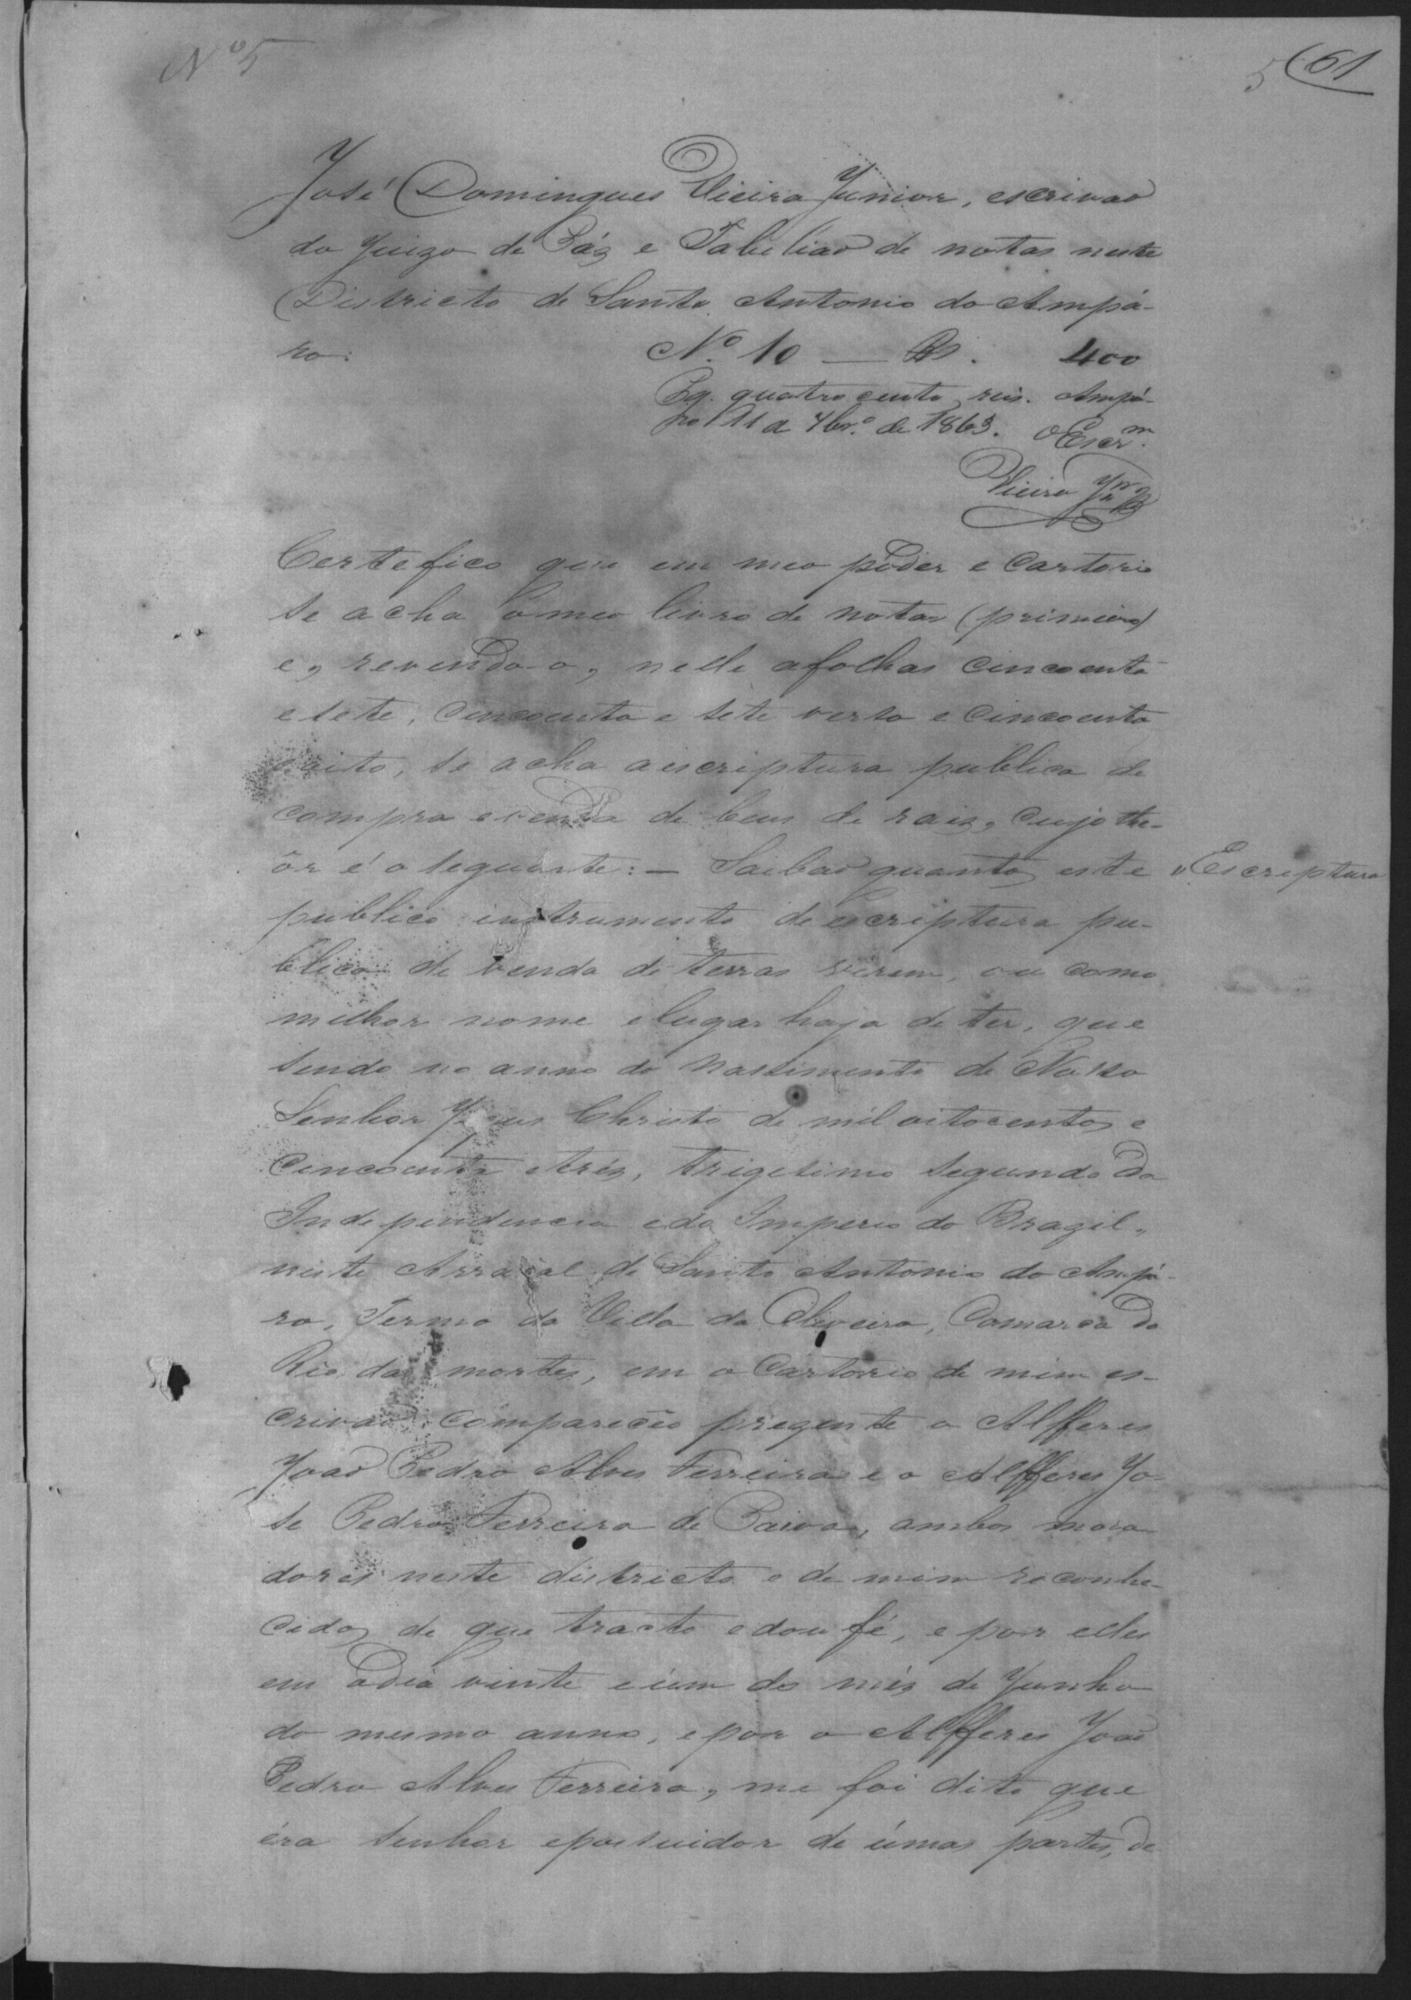 Nº 5
5 61
José Domingues Vieira Junior, escrivão
do Juizo de Páz e Tabelião de notas neste
Districto de Santo Antonio do Ampá-
ro.
Nº 10 — Rs. 400
Pg. quatro centos reis. Ampá-
ro 11 de 7br.º de 1863. O Escr.m
Vieira Jnr
Certefico que em meo pôder e Cartorio
se acha o meo livro de notas (primeiro)
e, revendo-o, nelle afolhas cincoenta
e sete, cincoenta e sete verso e cincoenta
e oito, se acha a escriptura publica de
compra e venda de bens de raiz, cujo the-
ôr é o seguinte: — Saibão quantos este
Escriptura
publico instrumento de escriptura pu-
blica de venda de terras virem, ou como
milhor nome e lugar haja de ter, que
sendo no anno do nascimento de Nosso
Senhor Jesus Christo de mil oitocentos e
cincoenta e tréz, trigesimo segundo da
Independencia e do Imperio do Brazil,
neste Arraial de Santo Antonio do Ampá-
ro, Termo da Villa da Oliveira, Comarca do
Rio das mortes, em o Cartorio de mim es-
crivão compareceo prezente o Alfferes
João Pedro Alves Ferreira e o Alfferes Jo-
se Pedro Ferreira de Paiva, ambos mora
dores neste districto e de mim reconhe-
cidos de que tracto e dou fé, e por elles
em o dia vinte e úm do mêz de Junho
do mesmo anno, e por o Alfferes João
Pedro Alves Ferreira, me foi dito que
éra senhor e possuidor de úmas partes de